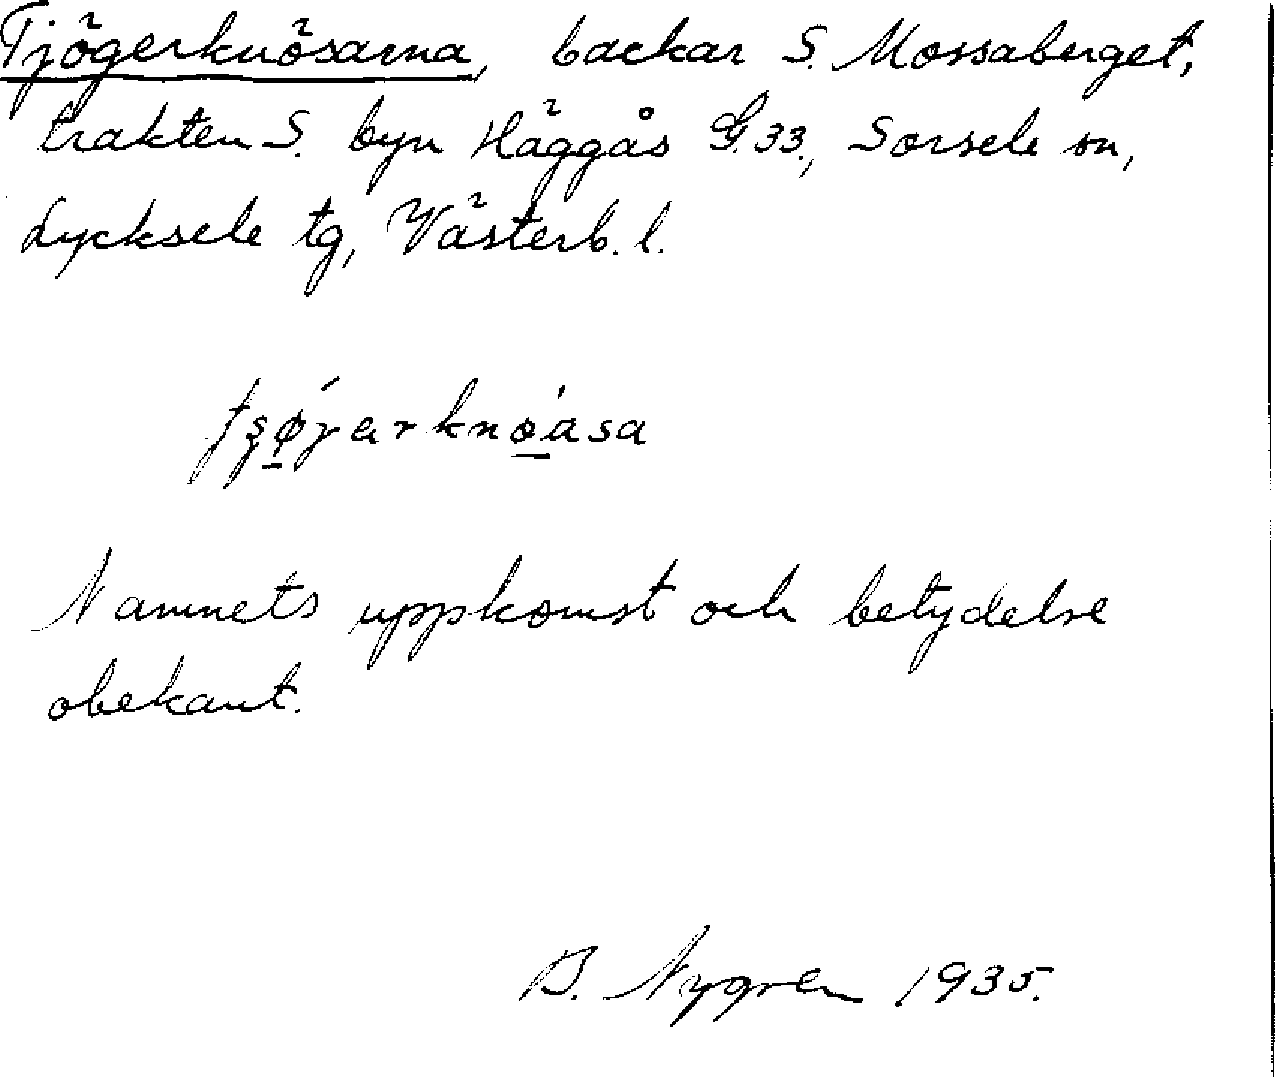 Tjögerknösarna, backar S. Mossaberget,
trakten S. byn Häggås G. 33., Sorsele sn,
Lycksele tg, Västerb. l.
Namnets uppkomst och betydelse
obekant.
B. Nygren 1935.